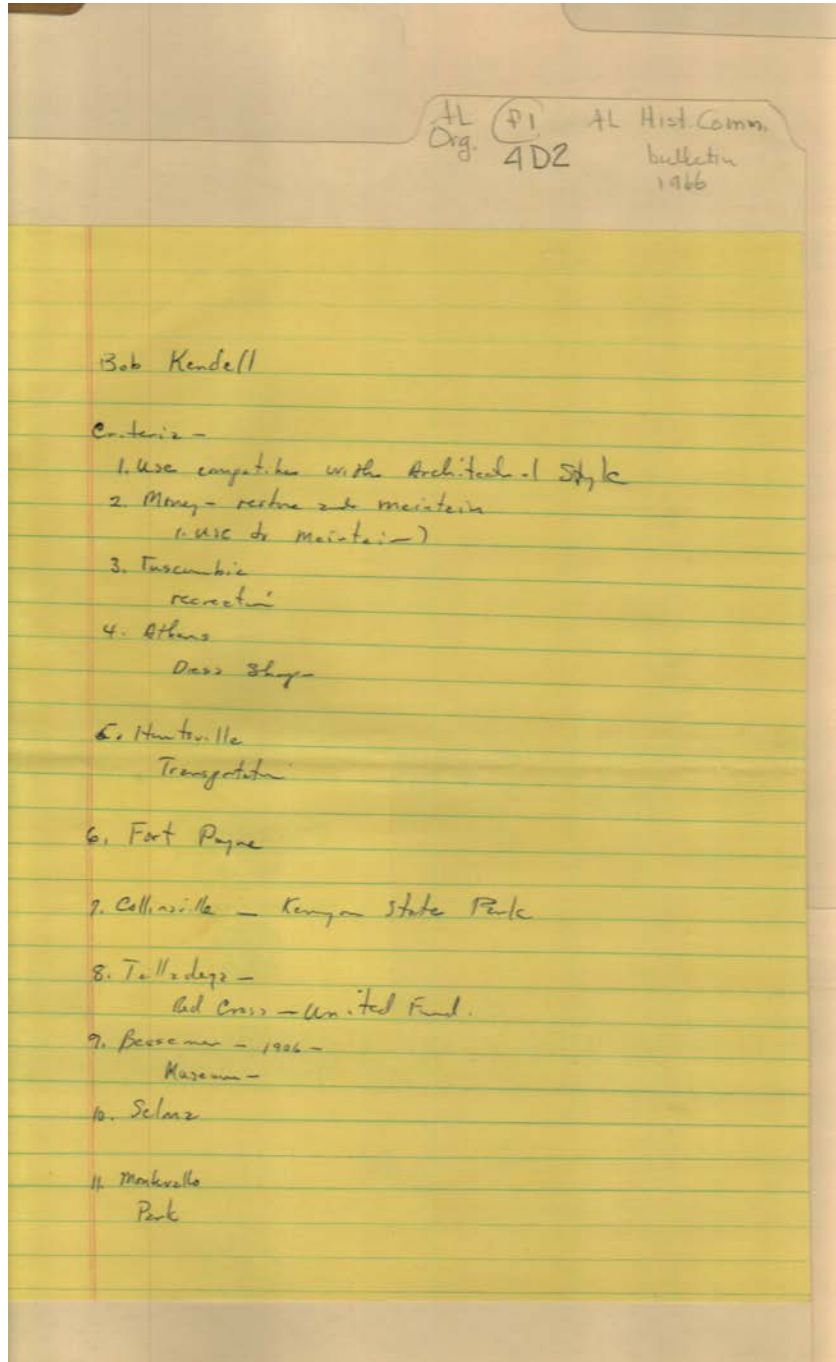 AL P1 AL Hist. Comm.
Org. 4D2 bulletin
1966
Bob Kendell
Criteria -
1. Use with Architectural Style
2. Money - restore and maintain
(. use to maintain)
3. Tuscumbia
recreation
4. Athens
Dress Shop -
5. Huntsville
Transportation
6. Fort Payne
7. Collinsville - State Park
8. Talladega -
Red Cross - United Fund.
9. Bessemer - 1906 -
Museum -
10. Selma
11. Montevallo
Park